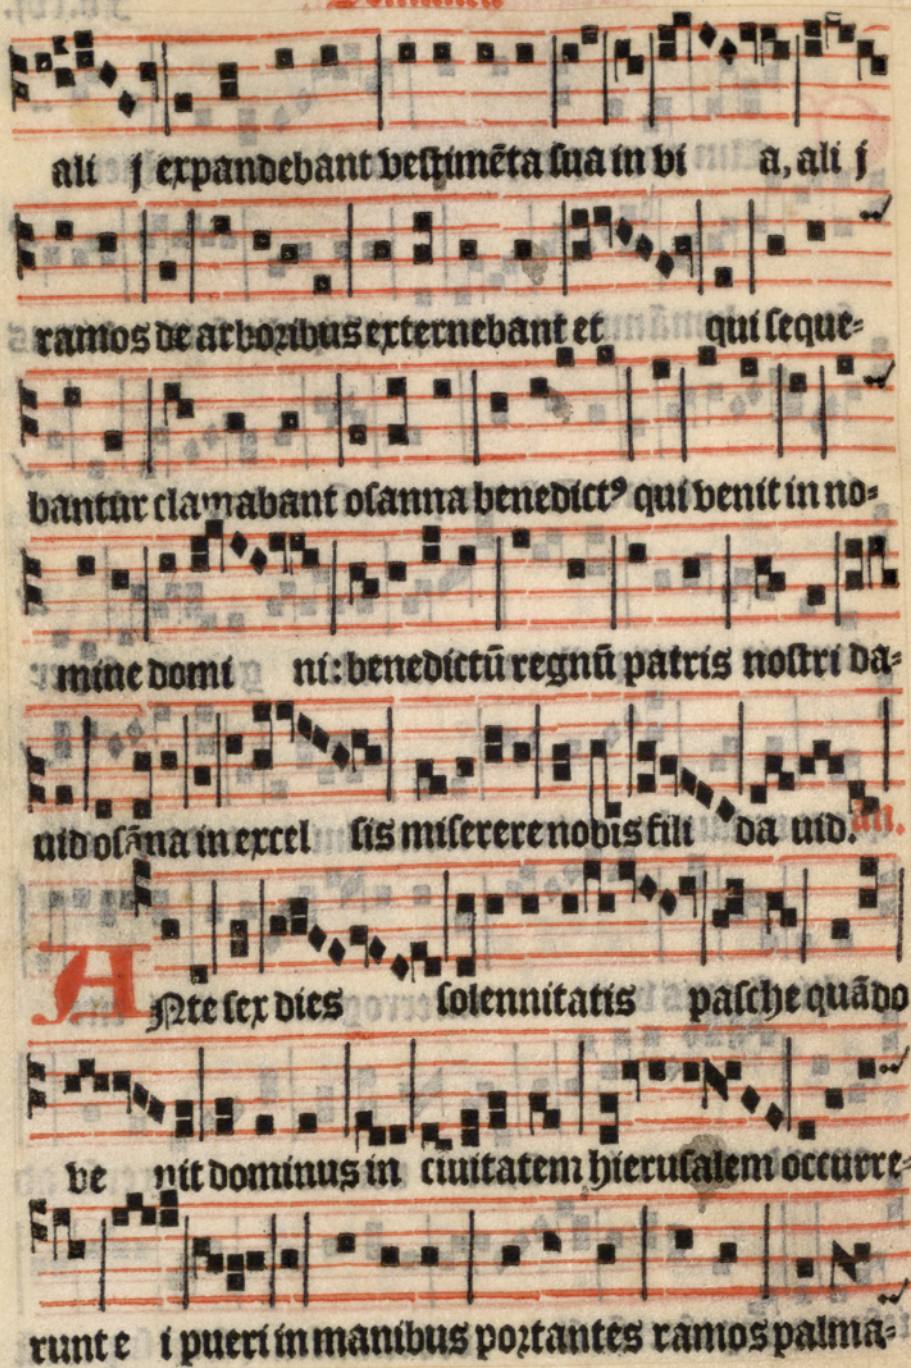 ali j expandebant vestimēta sua in vi a, ali j
ramos de arboribus externebant et qui seque=
bantur clamabant osanna benedictꝰ qui venit in no=
mine domi ni: benedictū regnū patris nostri da=
uid osāna in excel sis miserere nobis fili da uid. an.
ANte sex dies solennitatis pasche quādo
ve nit dominus in ciuitatem hierusalem occurre=
runt e i pueri in manibus portantes ramos palma=